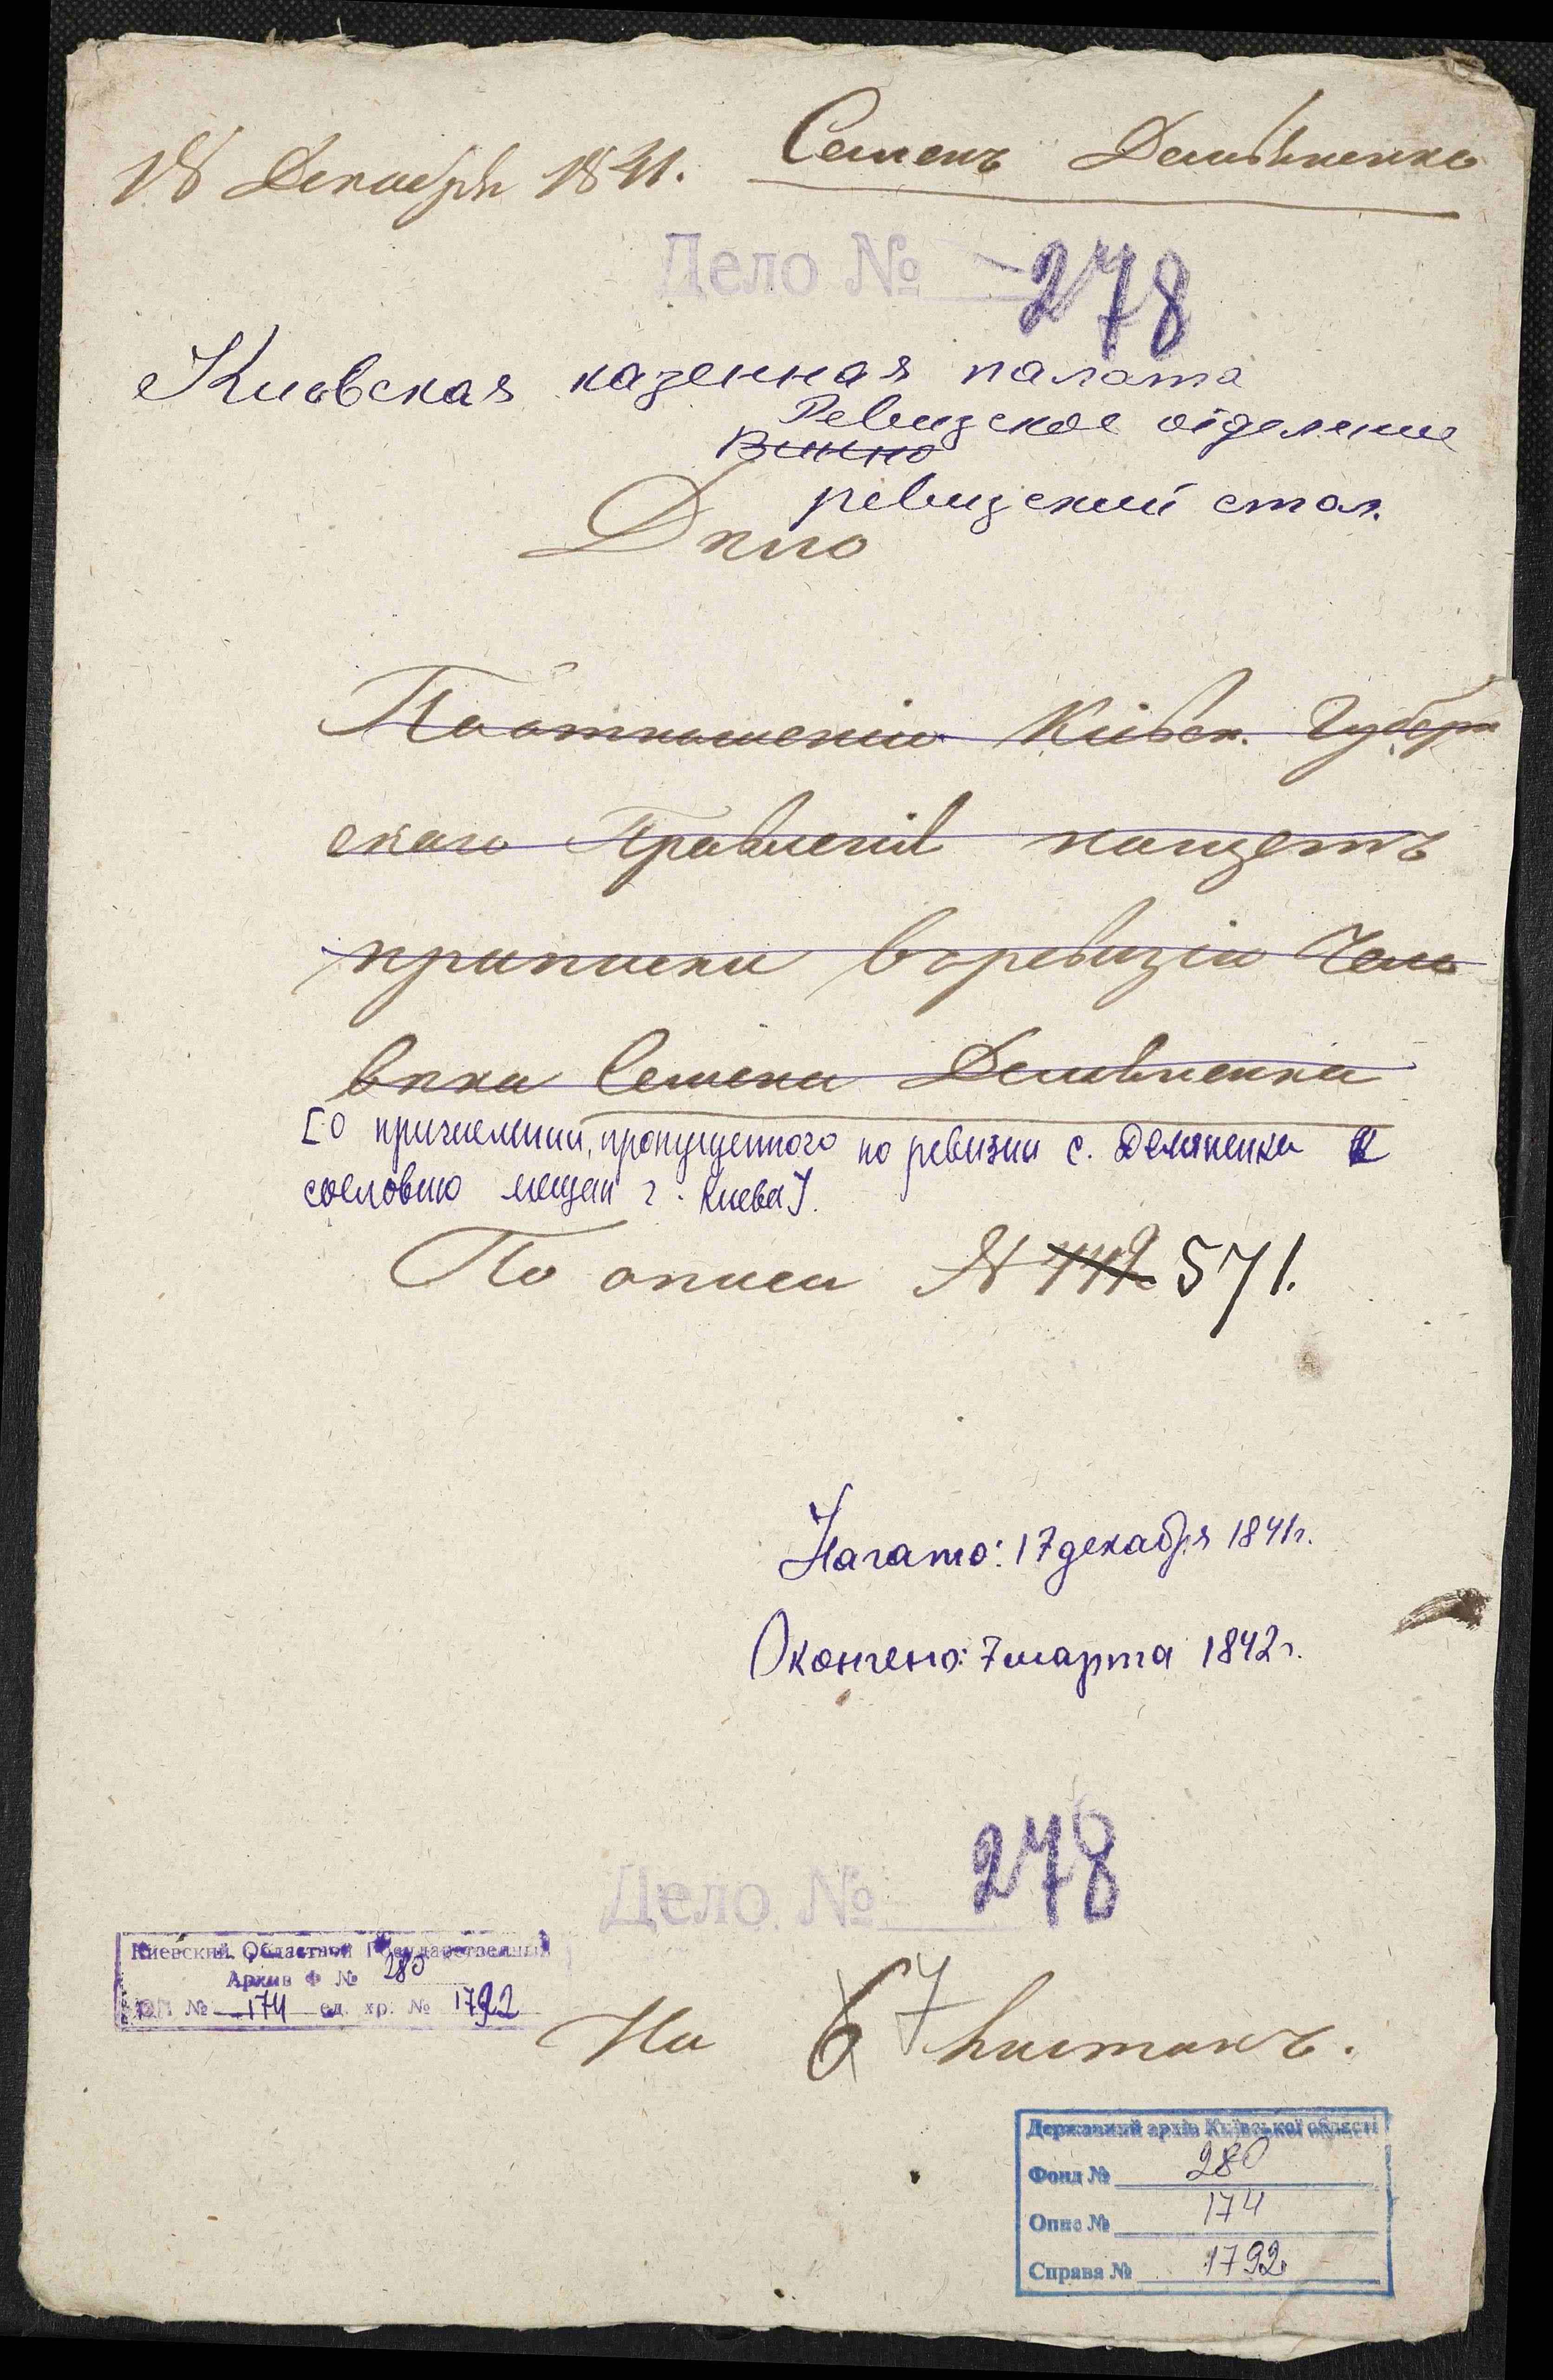 18 Декабря 1841. Семенъ Демьяненко
Дело № 278
Киевская казенная палата
Ревизское отделение
Винно
ревизский стол.
Дѣло
По отношенію Кіевск. Губерн
скаго Правленія насчетъ
приписки въ ревизію Чело
вѣка Семена Демьяненка
[О причислении, пропущенного по ревизии С. Демяненка к
сословию мещан г. Киева].
По описи № 571.
Начато: 17 декабря 1841 г.
Окончено: 7 марта 1842 г.
Дело № 278
Киевский Областной Государственный
Архив Ф № 280
ОП № 174 ед. хр. № 1792
На 6 7 листахъ.
Державний архів Київської області
Фонд № 280
Опис № 174
Справа № 1792